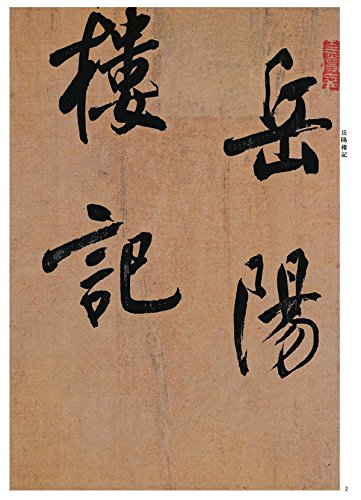 岳陽
樓記
岳陽樓記
2